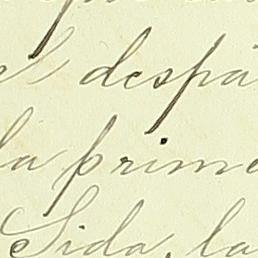 despa
la prime
Sida, la